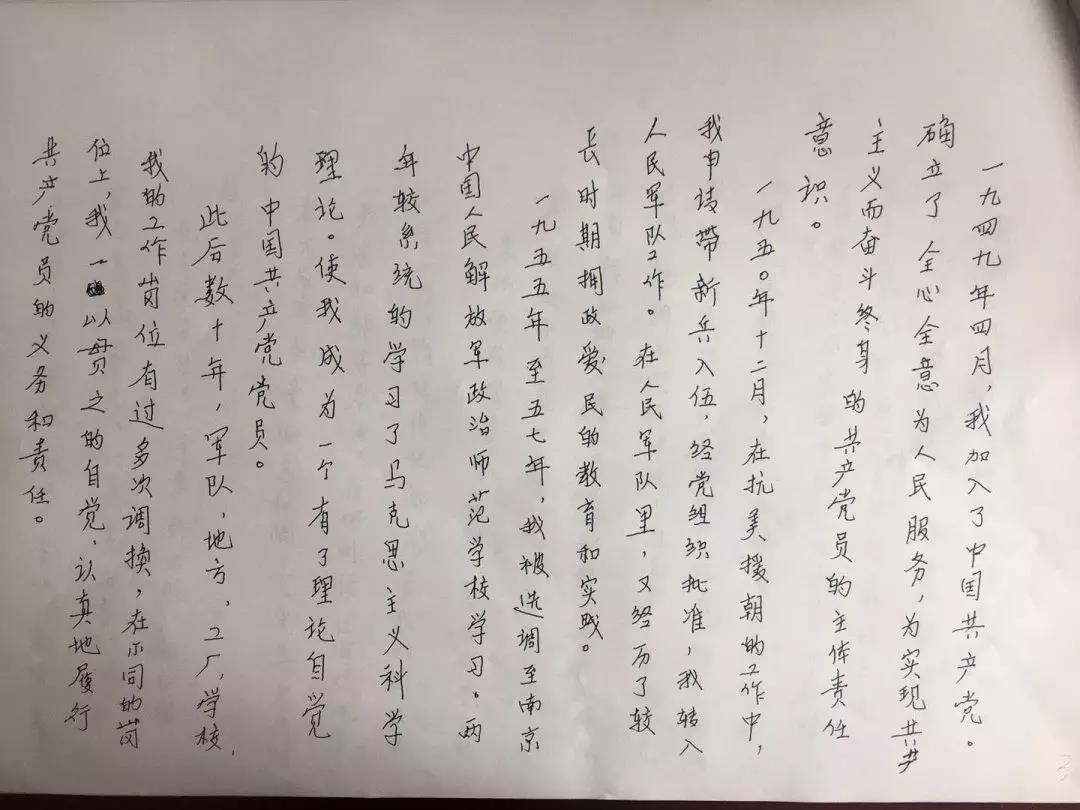 一九四九年四月，我加入了中国共产党。
确立了全心全意为人民服务，为实现共产
主义而奋斗终身的共产党员的主体责任
意识。
一九五〇年十二月，在抗美援朝的工作中，
我申请带新兵入伍，经党组织批准，我转入
人民军队工作。在人民军队里，又经历了较
长时期拥政爱民的教育和实践。
一九五五年至五七年，我被选调至南京
中国人民解放军政治师范学校学习。两
年较系统的学习了马克思主义科学
理论。使我成为一个有了理论自觉
的中国共产党党员。
此后数十年，军队，地方，工厂，学校，
我的工作岗位有过多次调换，在不同的岗
位上，我一以贯之的自觉，认真地履行
共产党员的义务和责任。